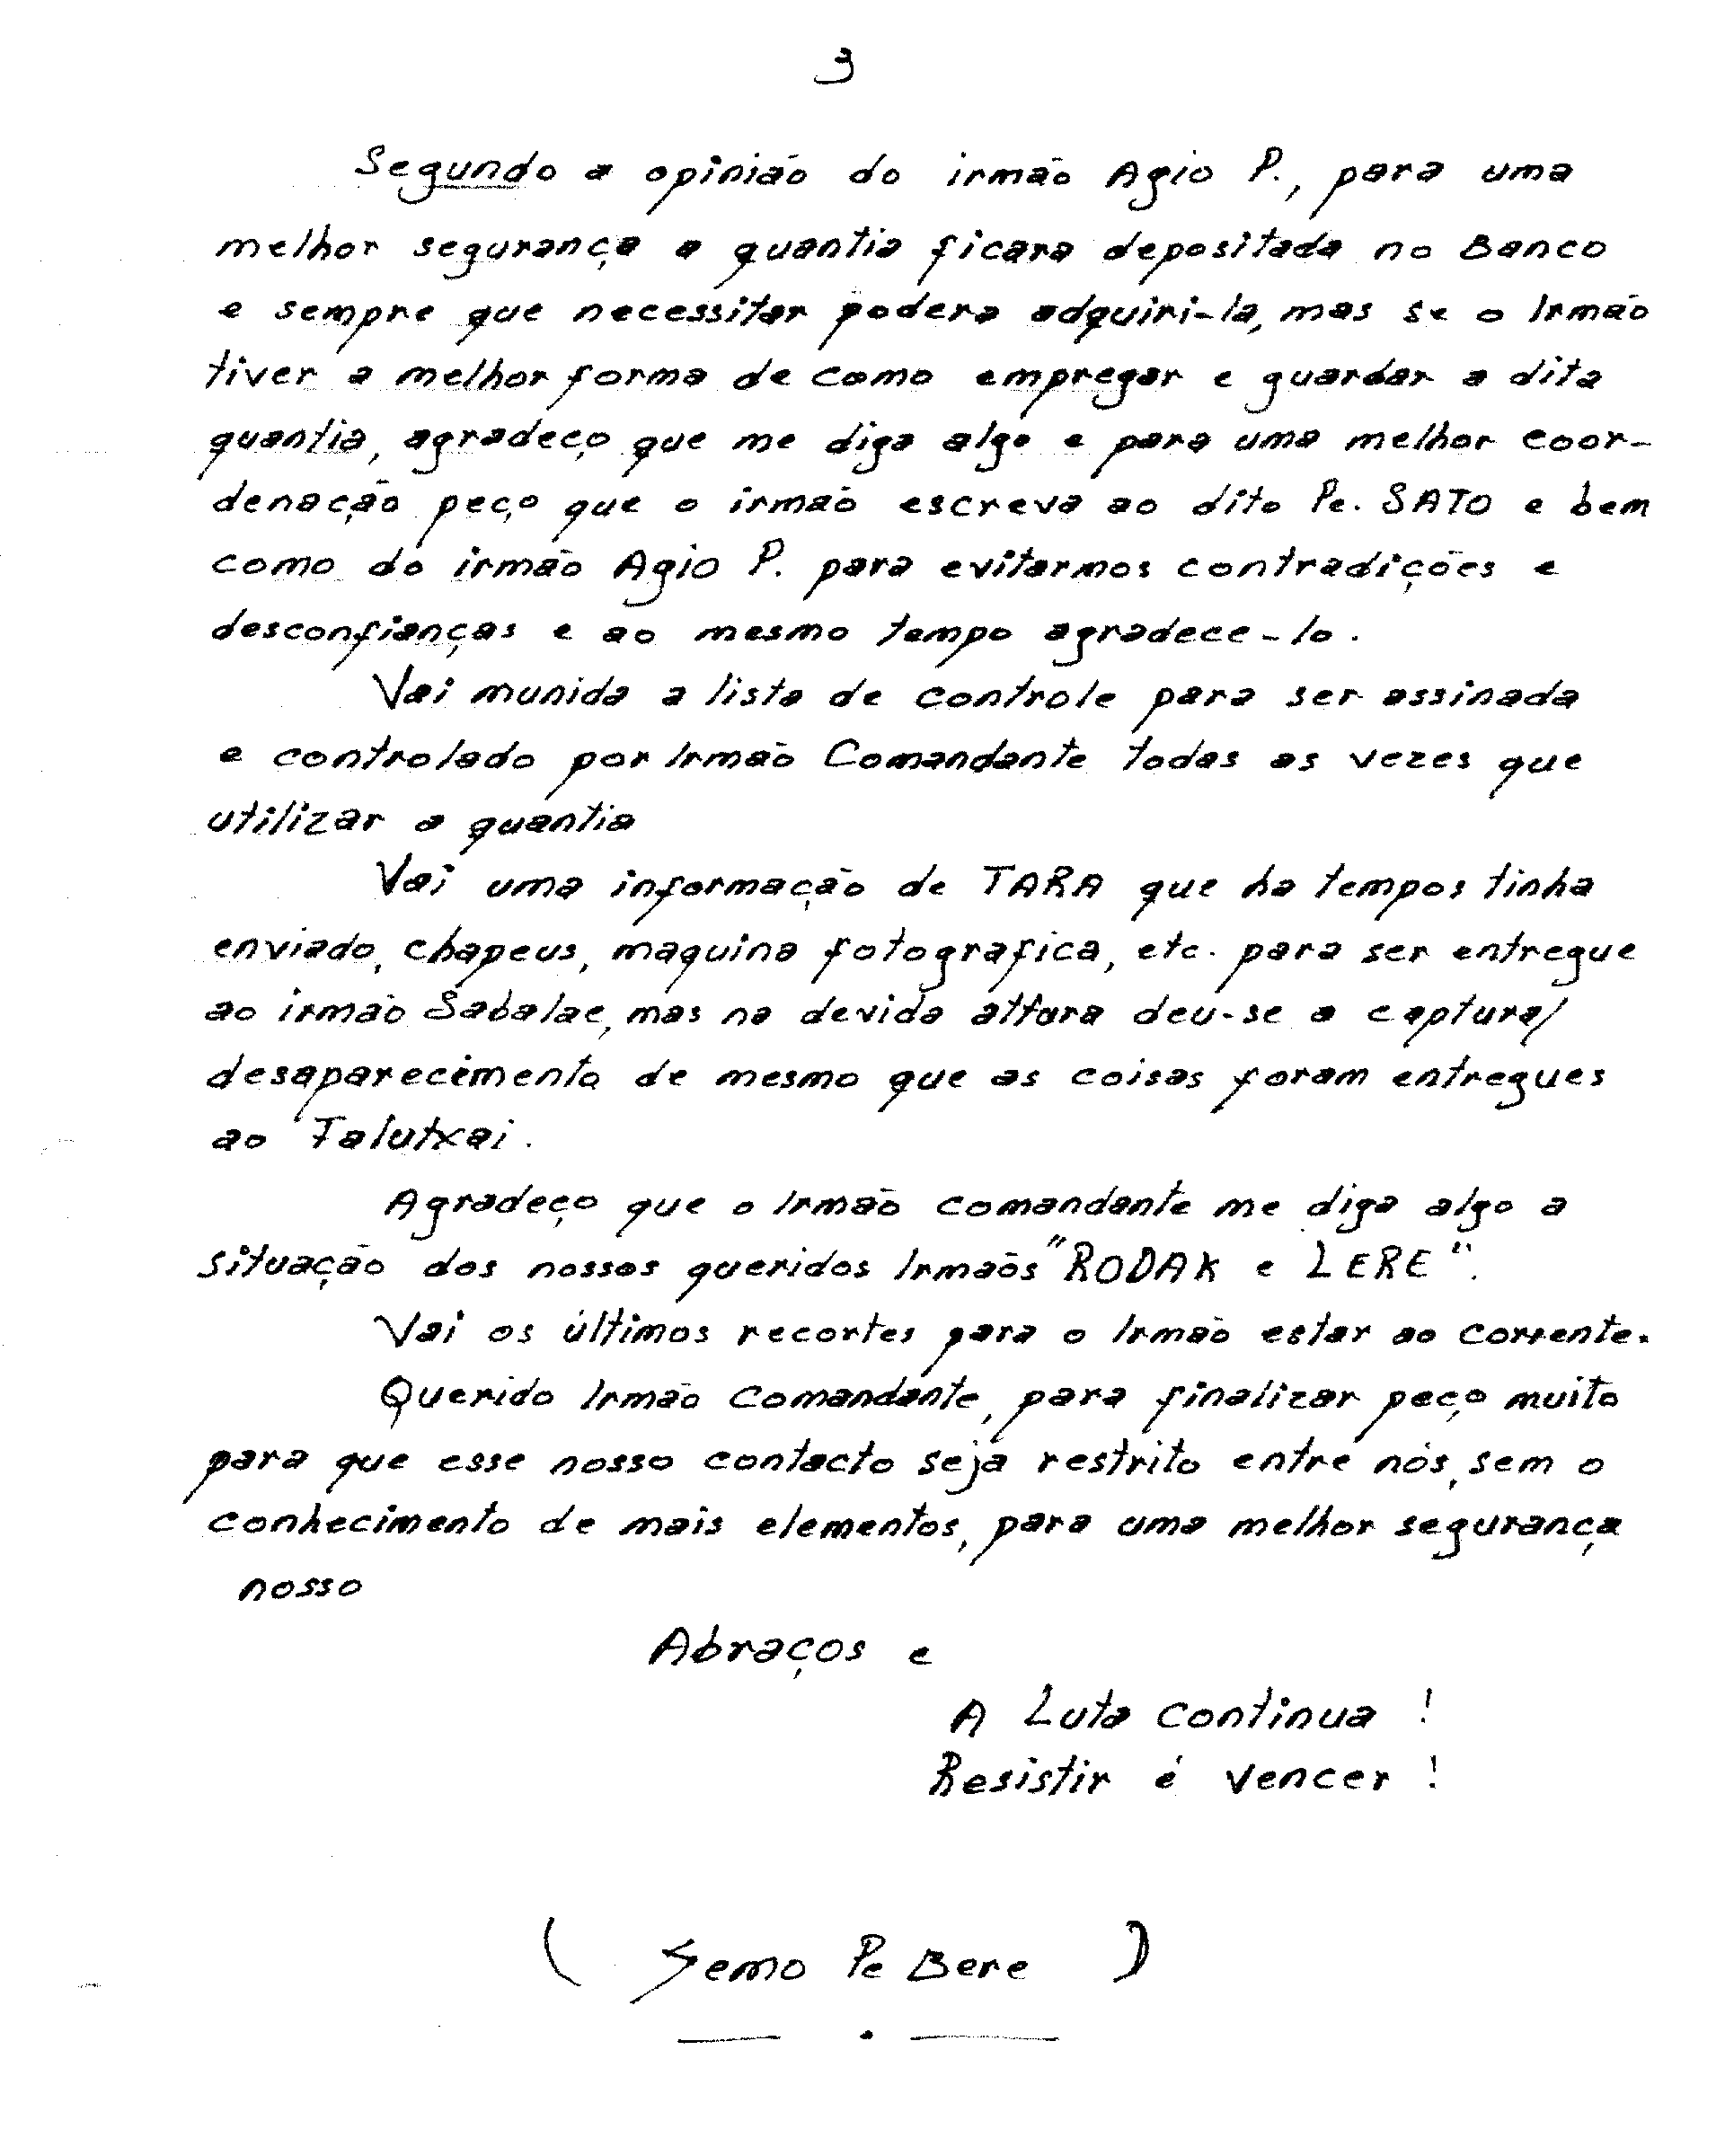 3
Segundo a opinião do irmão Agio P., para uma
melhor segurança a quantia ficara depositada no Banco
e sempre que necessitar podera adquiri-la, mas se o Irmão
tiver a melhor forma de como empregar e guardar a dita
quantia, agradeço que me diga algo e para uma melhor coor-
denação peço que o irmão escreva ao dito Pe. SATO e bem
como do irmão Agio P. para evitarmos contradições e
desconfianças e ao mesmo tempo agradece-lo.
Vai munida a lista de controle para ser assinada
e controlado por Irmão Comandante todas as vezes que
utilizar a quantia
Vai uma informação de TARA que ha tempos tinha
enviado, chapeus, maquina fotografica, etc. para ser entregue
ao irmão Sabalae, mas na devida altura deu-se a captura/
desaparecimento de mesmo que as coisas foram entregues
ao Falutxai.
Agradeço que o Irmão comandante me diga algo a
situação dos nossos queridos Irmãos "RODAK e LERE".
Vai os últimos recortes para o Irmão estar ao corrente.
Querido Irmão Comandante, para finalizar peço muito
para que esse nosso contacto seja restrito entre nós, sem o
conhecimento de mais elementos, para uma melhor segurança
nosso
Abraços e
A Luta Continua !
Resistir é vencer !
( Semo Pe Bere )